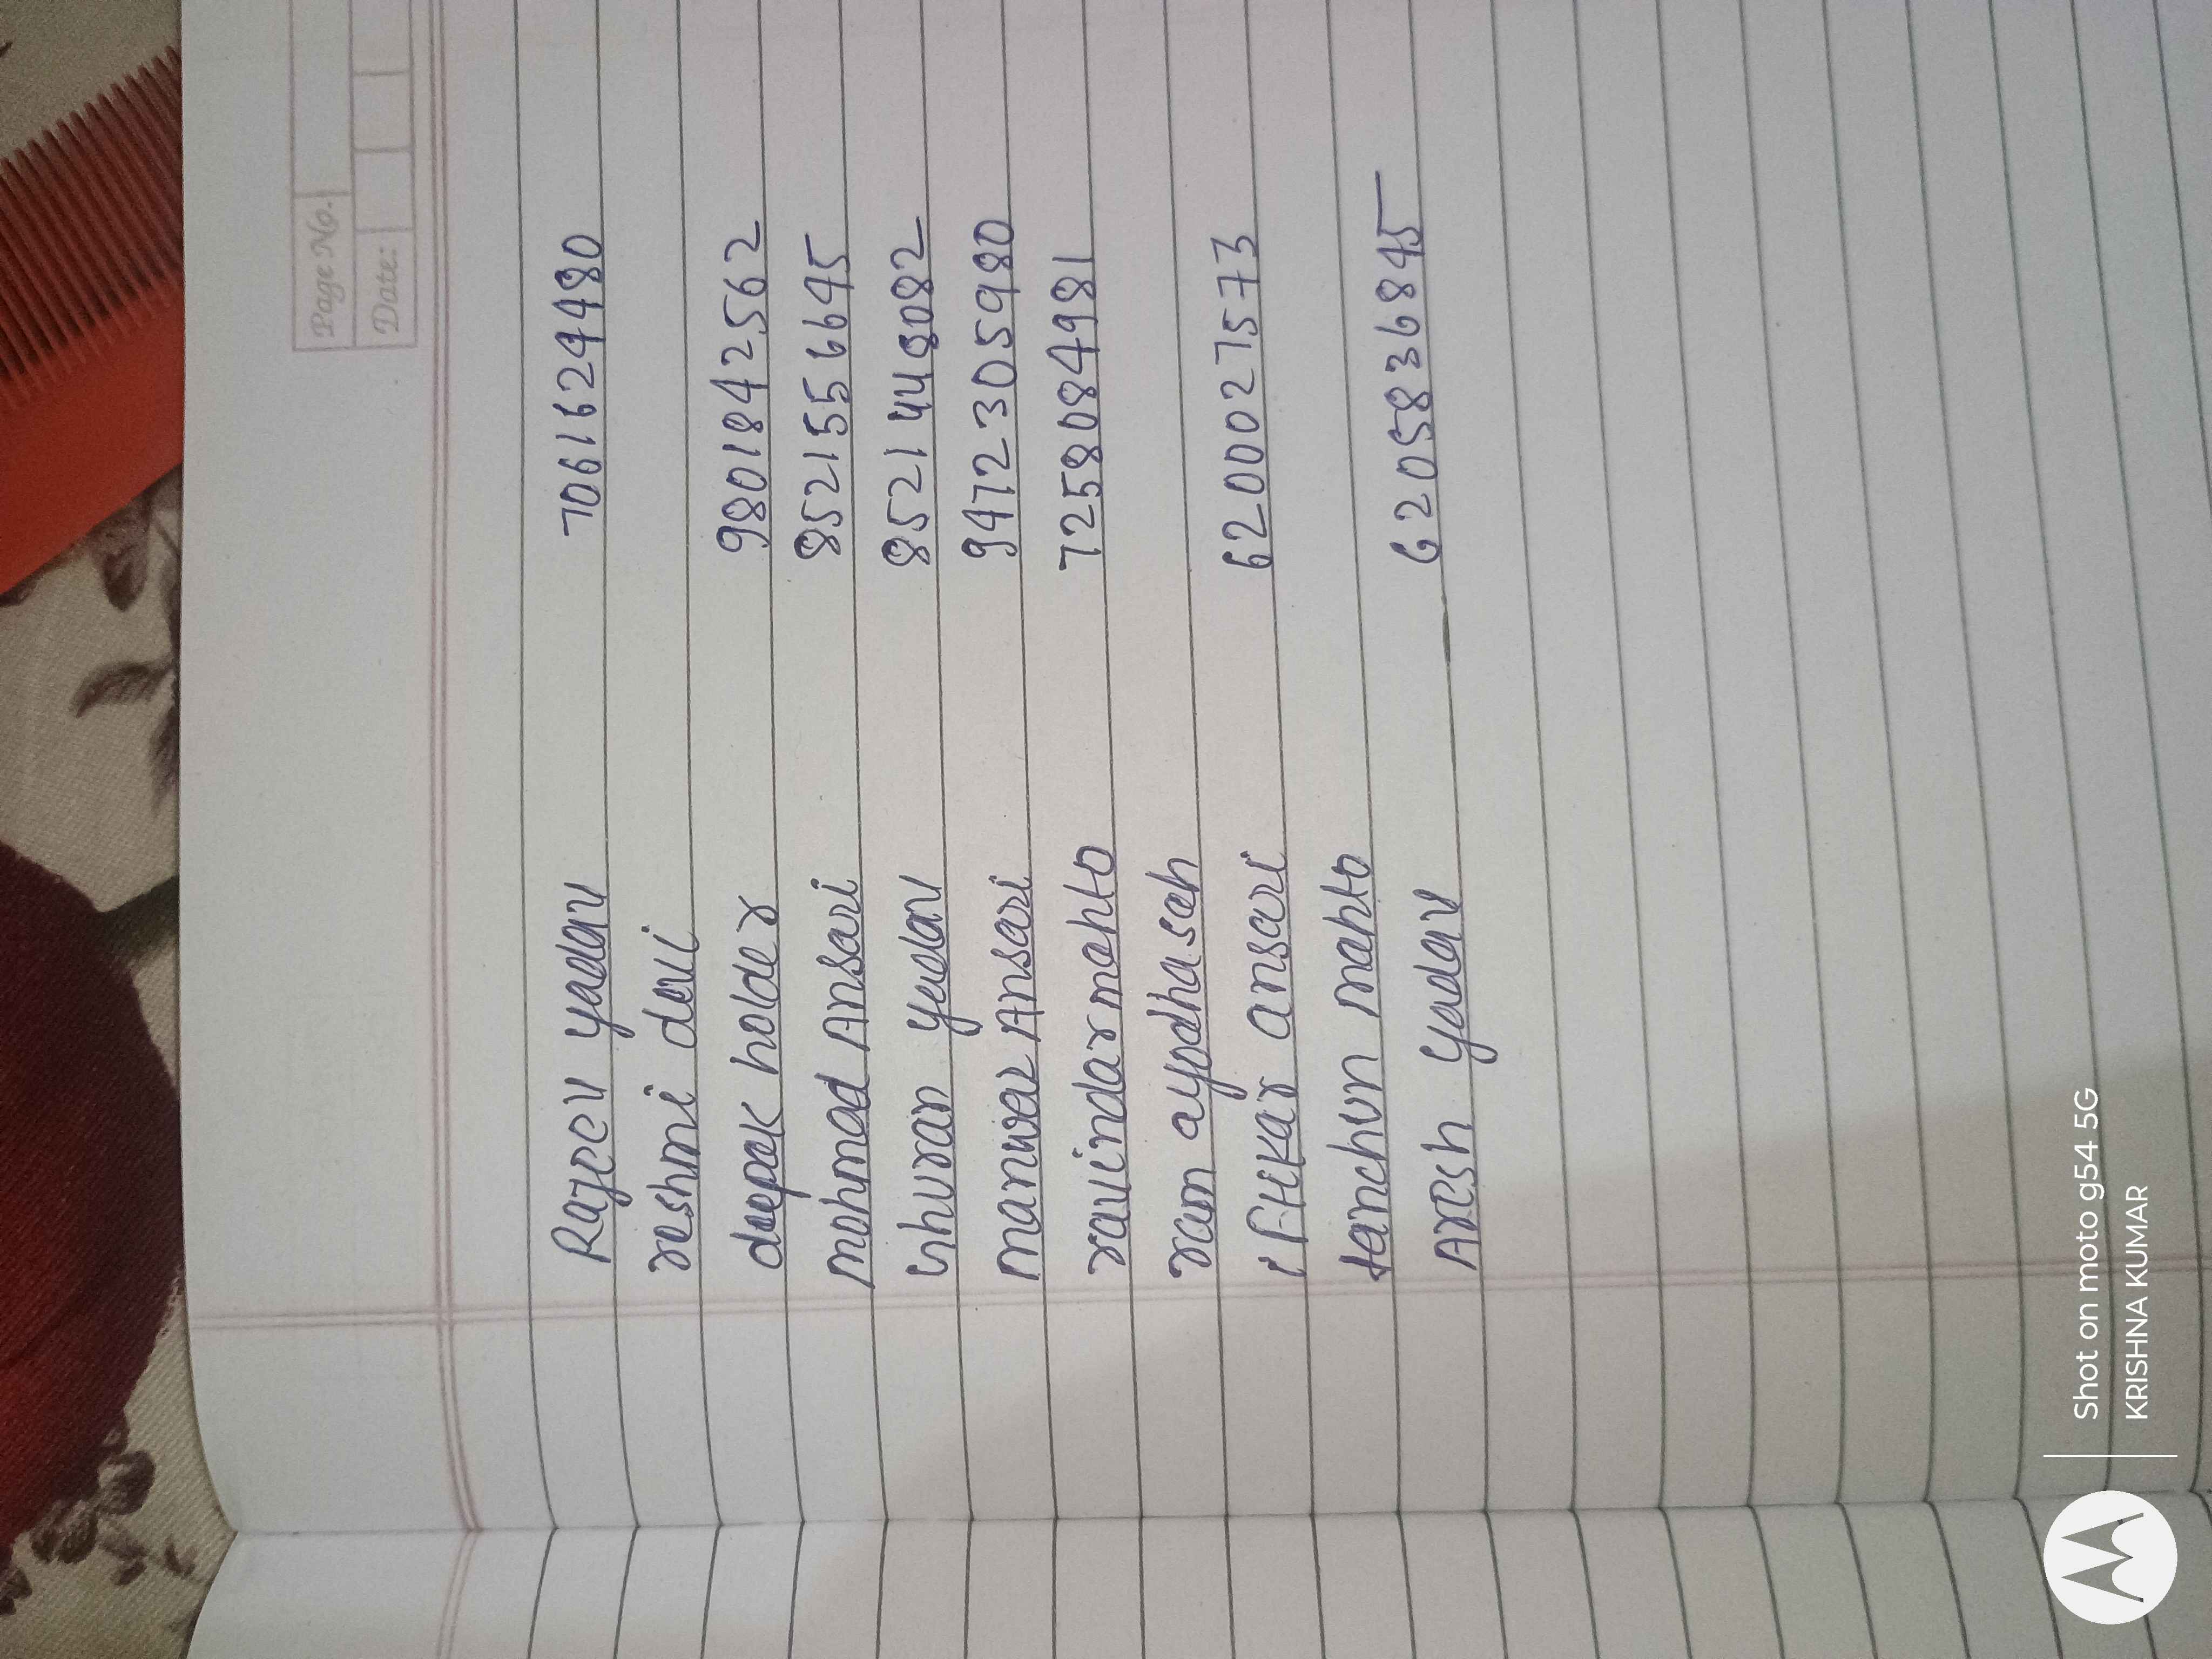 Page No.
Date:
Rajeev yadav 7061624480
reshmi devi
deepak holder 9801842562
mohmad Ansari 8521556645
yadav 8521448082
manwar Ansari 9472305980
ravindar mahto 7258084981
ram ayodha sah
ansari 6200027573
mahto
Aresh yadav 6205836845
Shot on moto g54 5G
KRISHNA KUMAR